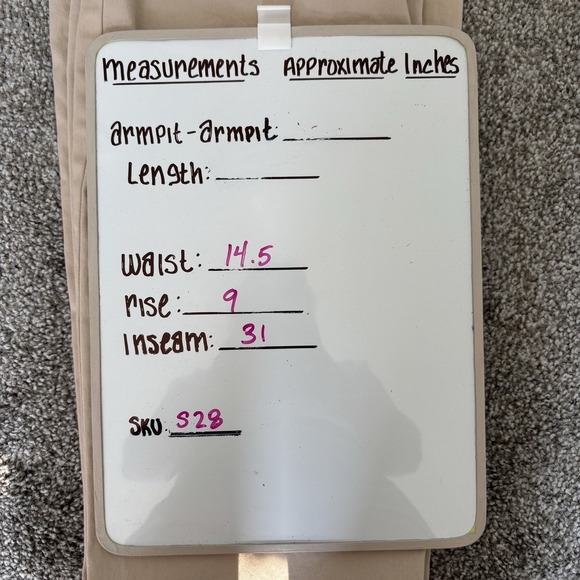 measurements Approximate Inches
armpit-armpit:
Length:
waist: 14.5
rise: 9
Inseam: 31
SKU: S28